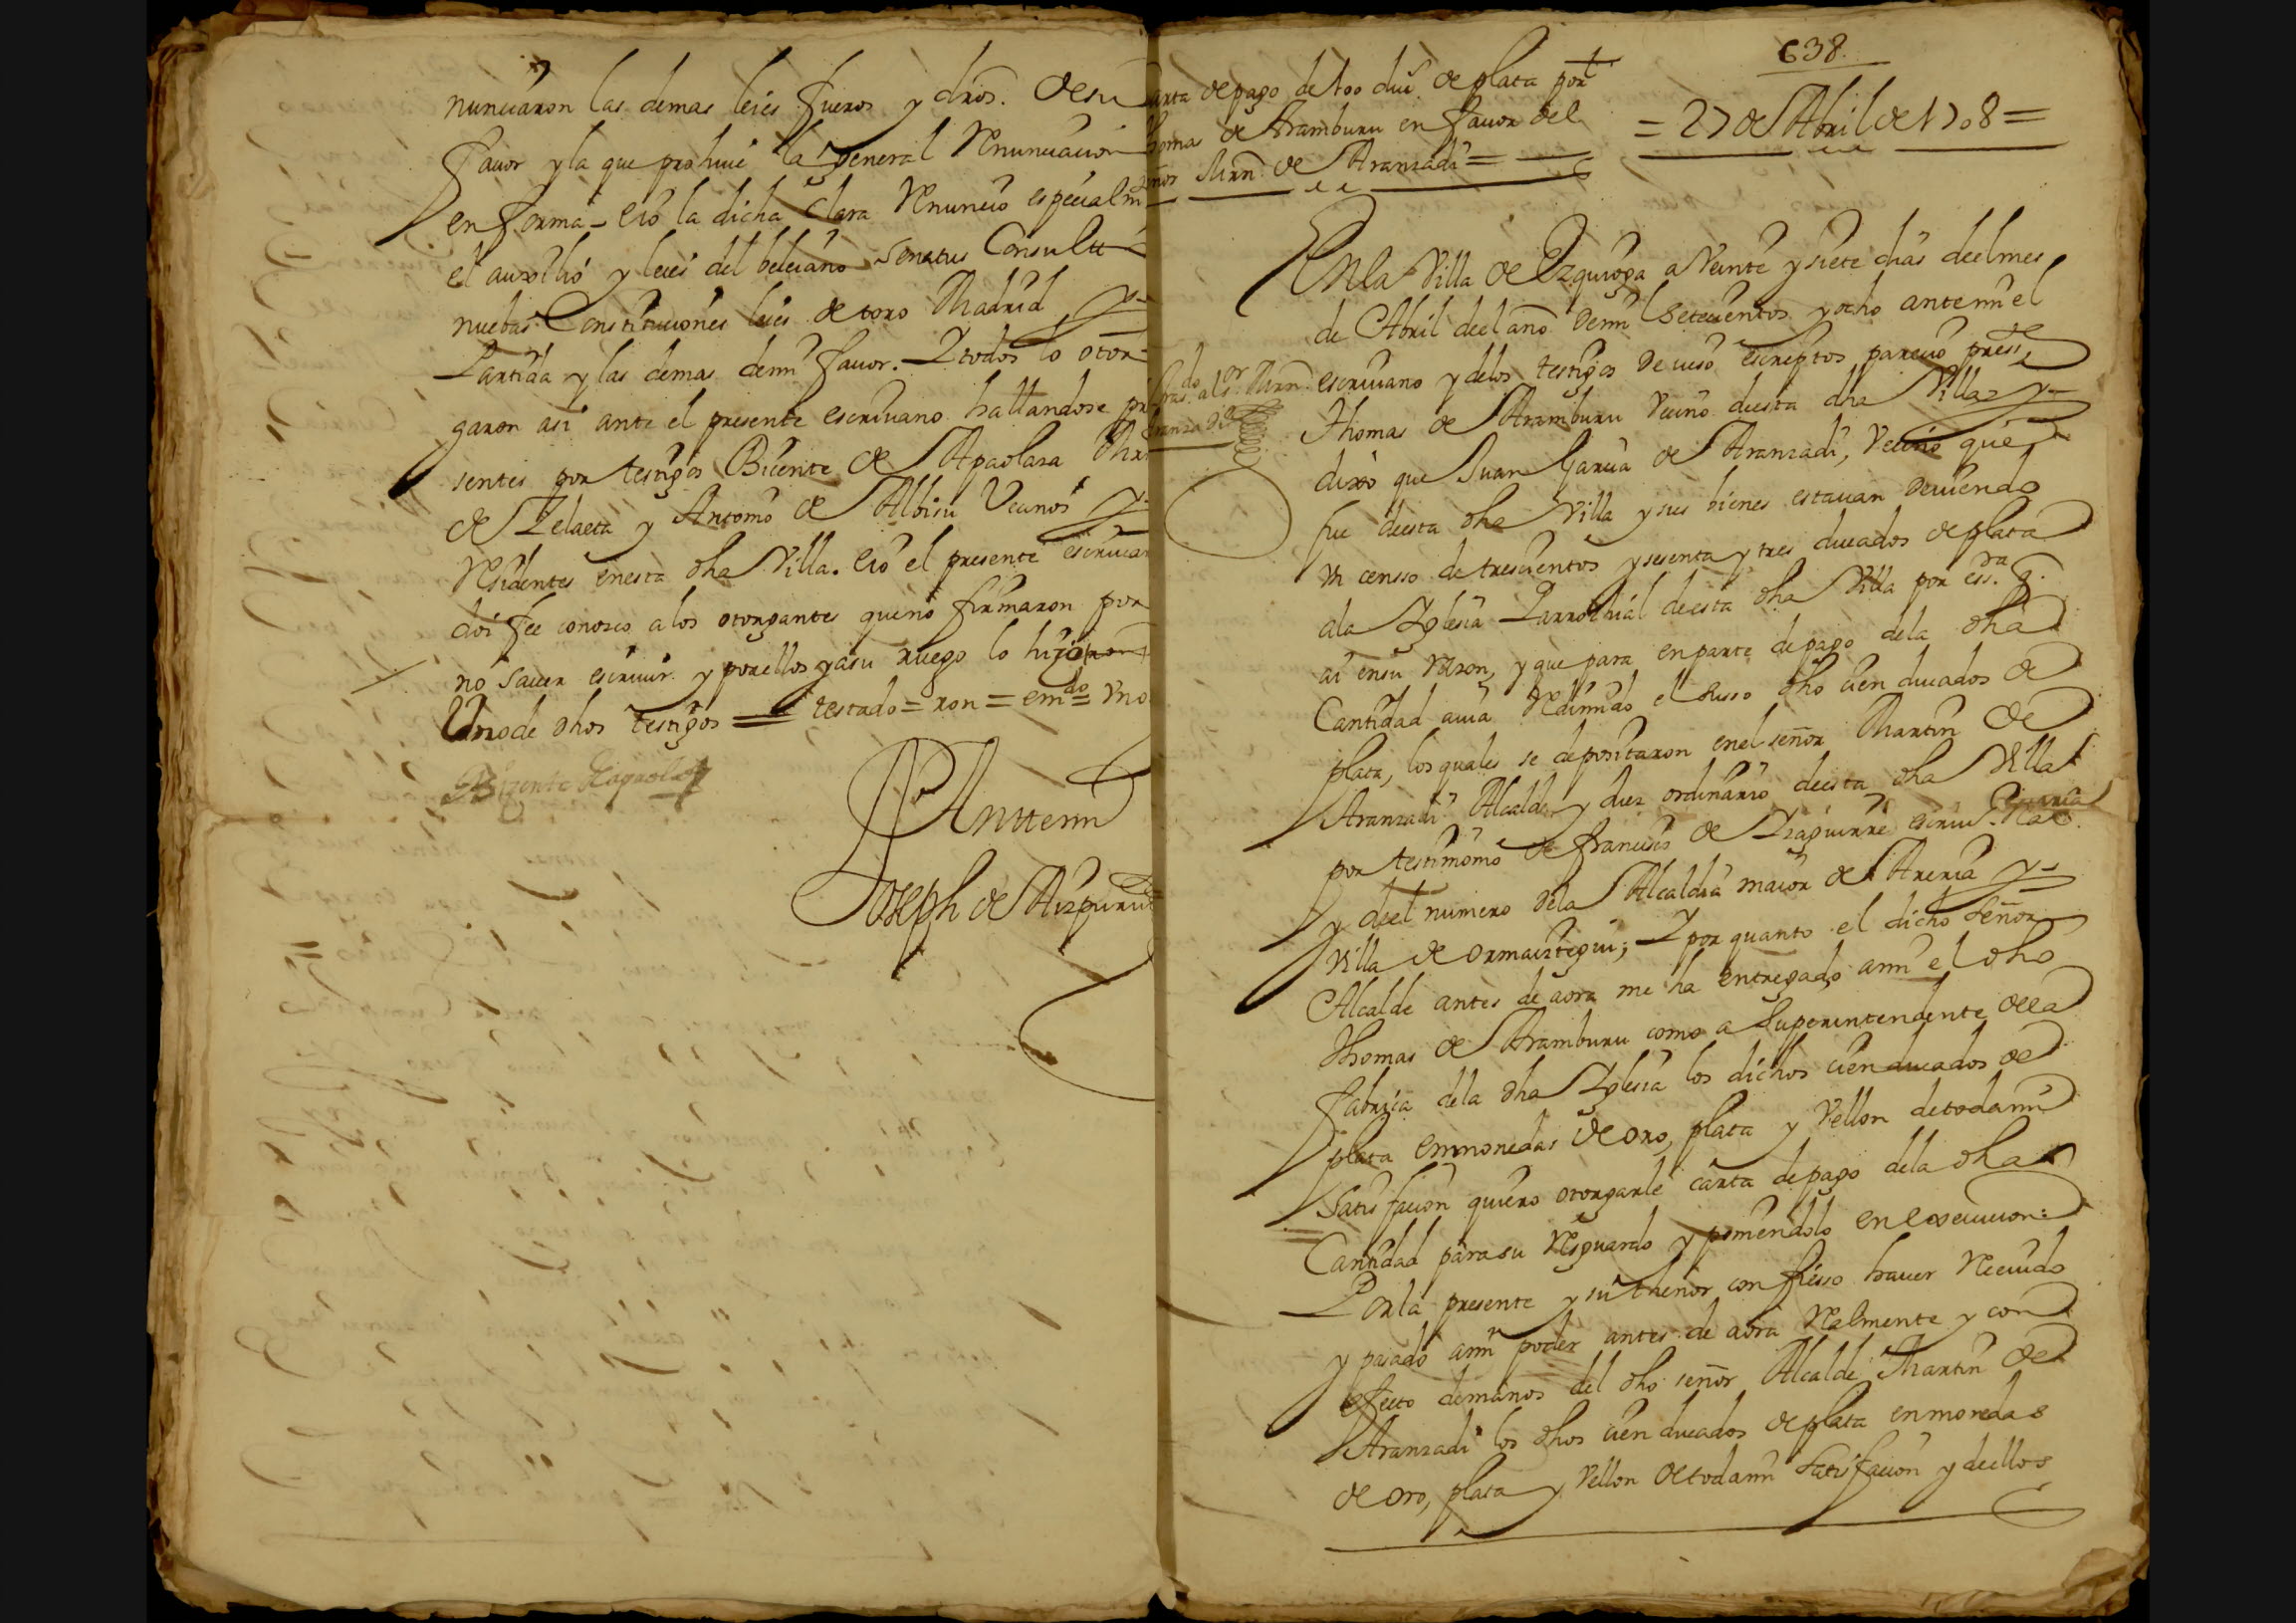 nunciaron las demas leies fueros y dros. de su
favor y la que prohive la general Renunciacion
en forma - e io la dicha Clara Renuncio especialm
el auxilio y leies del beleiano Senatus Consulto
nuebas Constituciones leies de toro Madrid y
Partida y las demas de mi favor. Y todos lo otor-
garon asi ante el presente escrivano hallandose pre
sentes por testigos Bicente de Apaolaza
de Zelaeta y Antonio de Albisu Vecinos y
Residentes en esta dha Villa. e io el presente escrivan
doi fee conozco a los otorgantes que no firmaron por
no saver escrivir y por ellos y a su ruego lo hizo
Uno de dhos testigos = testado = ron = emdo = Vno
Bizente Apaola
Ante mi
Joseph de Aizpuru
638.
Carta de pago de 100 dus. de plata por
Thomas de Aramburu en favor del
Señor Mrn de Aranzadi =
= 27 de Abril de 1708 =
En la Villa de Ezquioga a Veinte y siete dias de el mes
de Abril de el año de mil Setecientos y ocho ante mi el
escrivano y de los testigos de iuso escriptos parecio presste
Thomas de Aramburu Vecino de esta dha Villa y
dixo que Juan Garcia de Aranzadi, Vecino que
fue de esta dha Villa y sus bienes estavan deviendo
Vn censso de trescientos y sesenta y tres ducados de plata
a la Yglesia Parrochial de esta dha Villa por essra. q.
ai en su Razon, y que para en parte de pago de la dha
Cantidad avia Redimido el susso dho cien ducados de
plata, los quales se depositaron en el señor Martin de
Aranzadi Alcalde y Juez ordinario de esta dha Villa
por testimonio de Francisco de Yzaguirre escriv. Real
y de el numero de la Alcaldia maior de Areria y
Villa de Ormaiztegui; Y por quanto el dicho Señor
Alcalde antes de aora me ha entregado a mi el dho
Thomas de Aramburu como a Superintendente de la
fabrica de la dha Yglesia los dichos cien ducados de
plata en monedas de oro, plata y Vellon de toda mi
Satisfacion quiero otorgarle carta de pago de la dha
Cantidad para su Resguardo y poniendolo en execucion:
Por la presente y su thenor confiesso haver Recivido
y pasado a mi poder antes de aora Realmente y con
efecto de manos del dho señor Alcalde Martin de
Aranzadi los dhos cien ducados de plata en monedas
de oro, plata y Vellon de toda mi Satisfacion y de ellos